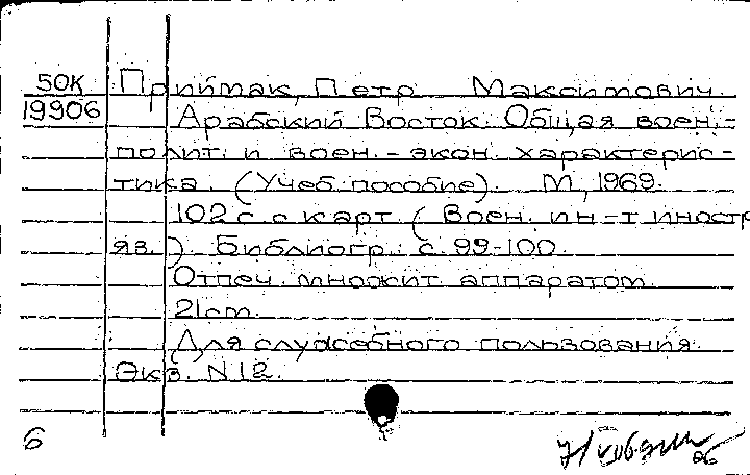 50К Приймак, Петр Максимович.
19906 Арабский Восток. Общая воен.-
полит. и воен.-экон. характерис-
тика. (Учеб. пособие). М, 1969.
102 с. с карт. (Воен. ин-т иностр.
яз.). Библиогр.: с. 99-100.
Отпеч. множит. аппаратом.
21 см.
Для служебного пользования.
Экз. N 12.
6